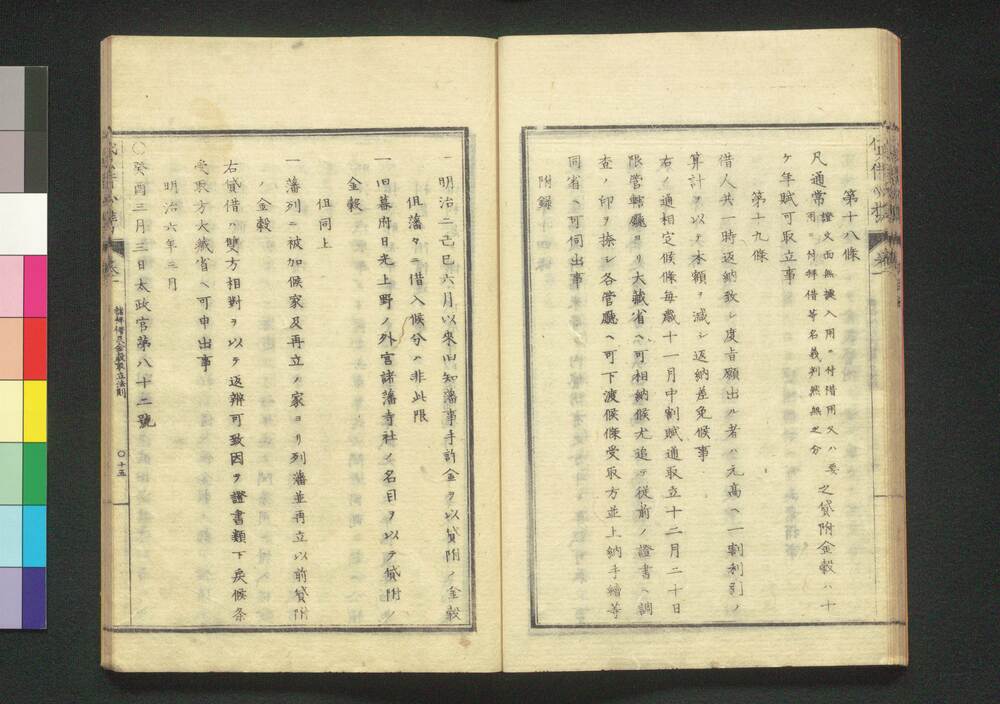 第十八條
凡通常證文面無據入用ヲ付借用又ハ要用ニ付拝借等名義判然無之分之貸附金穀ハ十
ケ年賦可取立事
第十九條
借人共一時返納致シ度旨願出ル者ハ元高ヘ一割利引ノ
算計ヲ以テ本額ヲ減シ返納差免候事
右ノ通相定候條毎歳十一月中割賦通取立十二月二十日
限管轄廳ヨリ大藏省ヘ可相納候尤追テ從前ノ證書ヘ調
査ノ印ヲ捺シ各管廳ヘ可下渡候條受取方並上納手續等
同省ヘ可伺出事
附錄
一明治二己巳六月以來旧知藩事手許金ヲ以貸附ノ金穀
但藩々ニ借入候分ハ非此限
一旧幕府日光上野ノ外宮諸藩寺社ノ名目ヲ以テ貸附ノ
金穀
但同上
一藩列ニ被加候家及再立ノ家ヨリ列藩並再立以前貸附
ノ金穀
右貸借ハ雙方相對ヲ以テ返辨可致因テ證書類下戻候条
受取方大藏省ヘ可申出事
明治六年三月
〇癸酉三月三日太政官第八十二號
諸拝借及金穀取立法則
〇十五